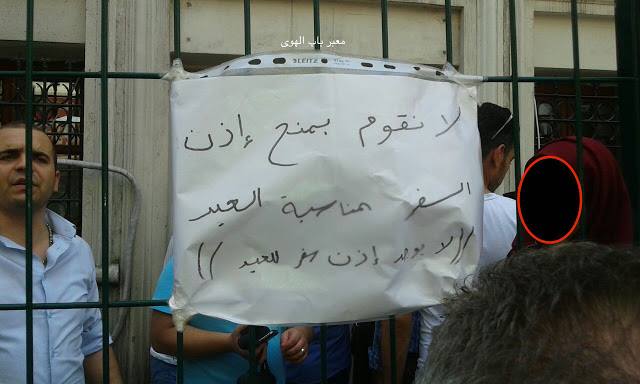 معبر باب الهوى
BLEITZ
لا نقوم بمنح إذن
السفر بمناسبة العيد
// لا يوجد إذن سفر للعيد //